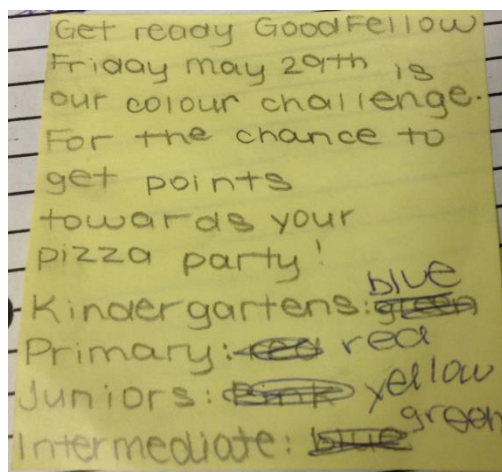 Get ready GoodFellow
Friday may 29th is
our colour challenge.
For the chance to
get points
towards your
pizza party!
Kindergartens: green blue
Primary: red red
Juniors: Pink yellow
Intermediate: blue green